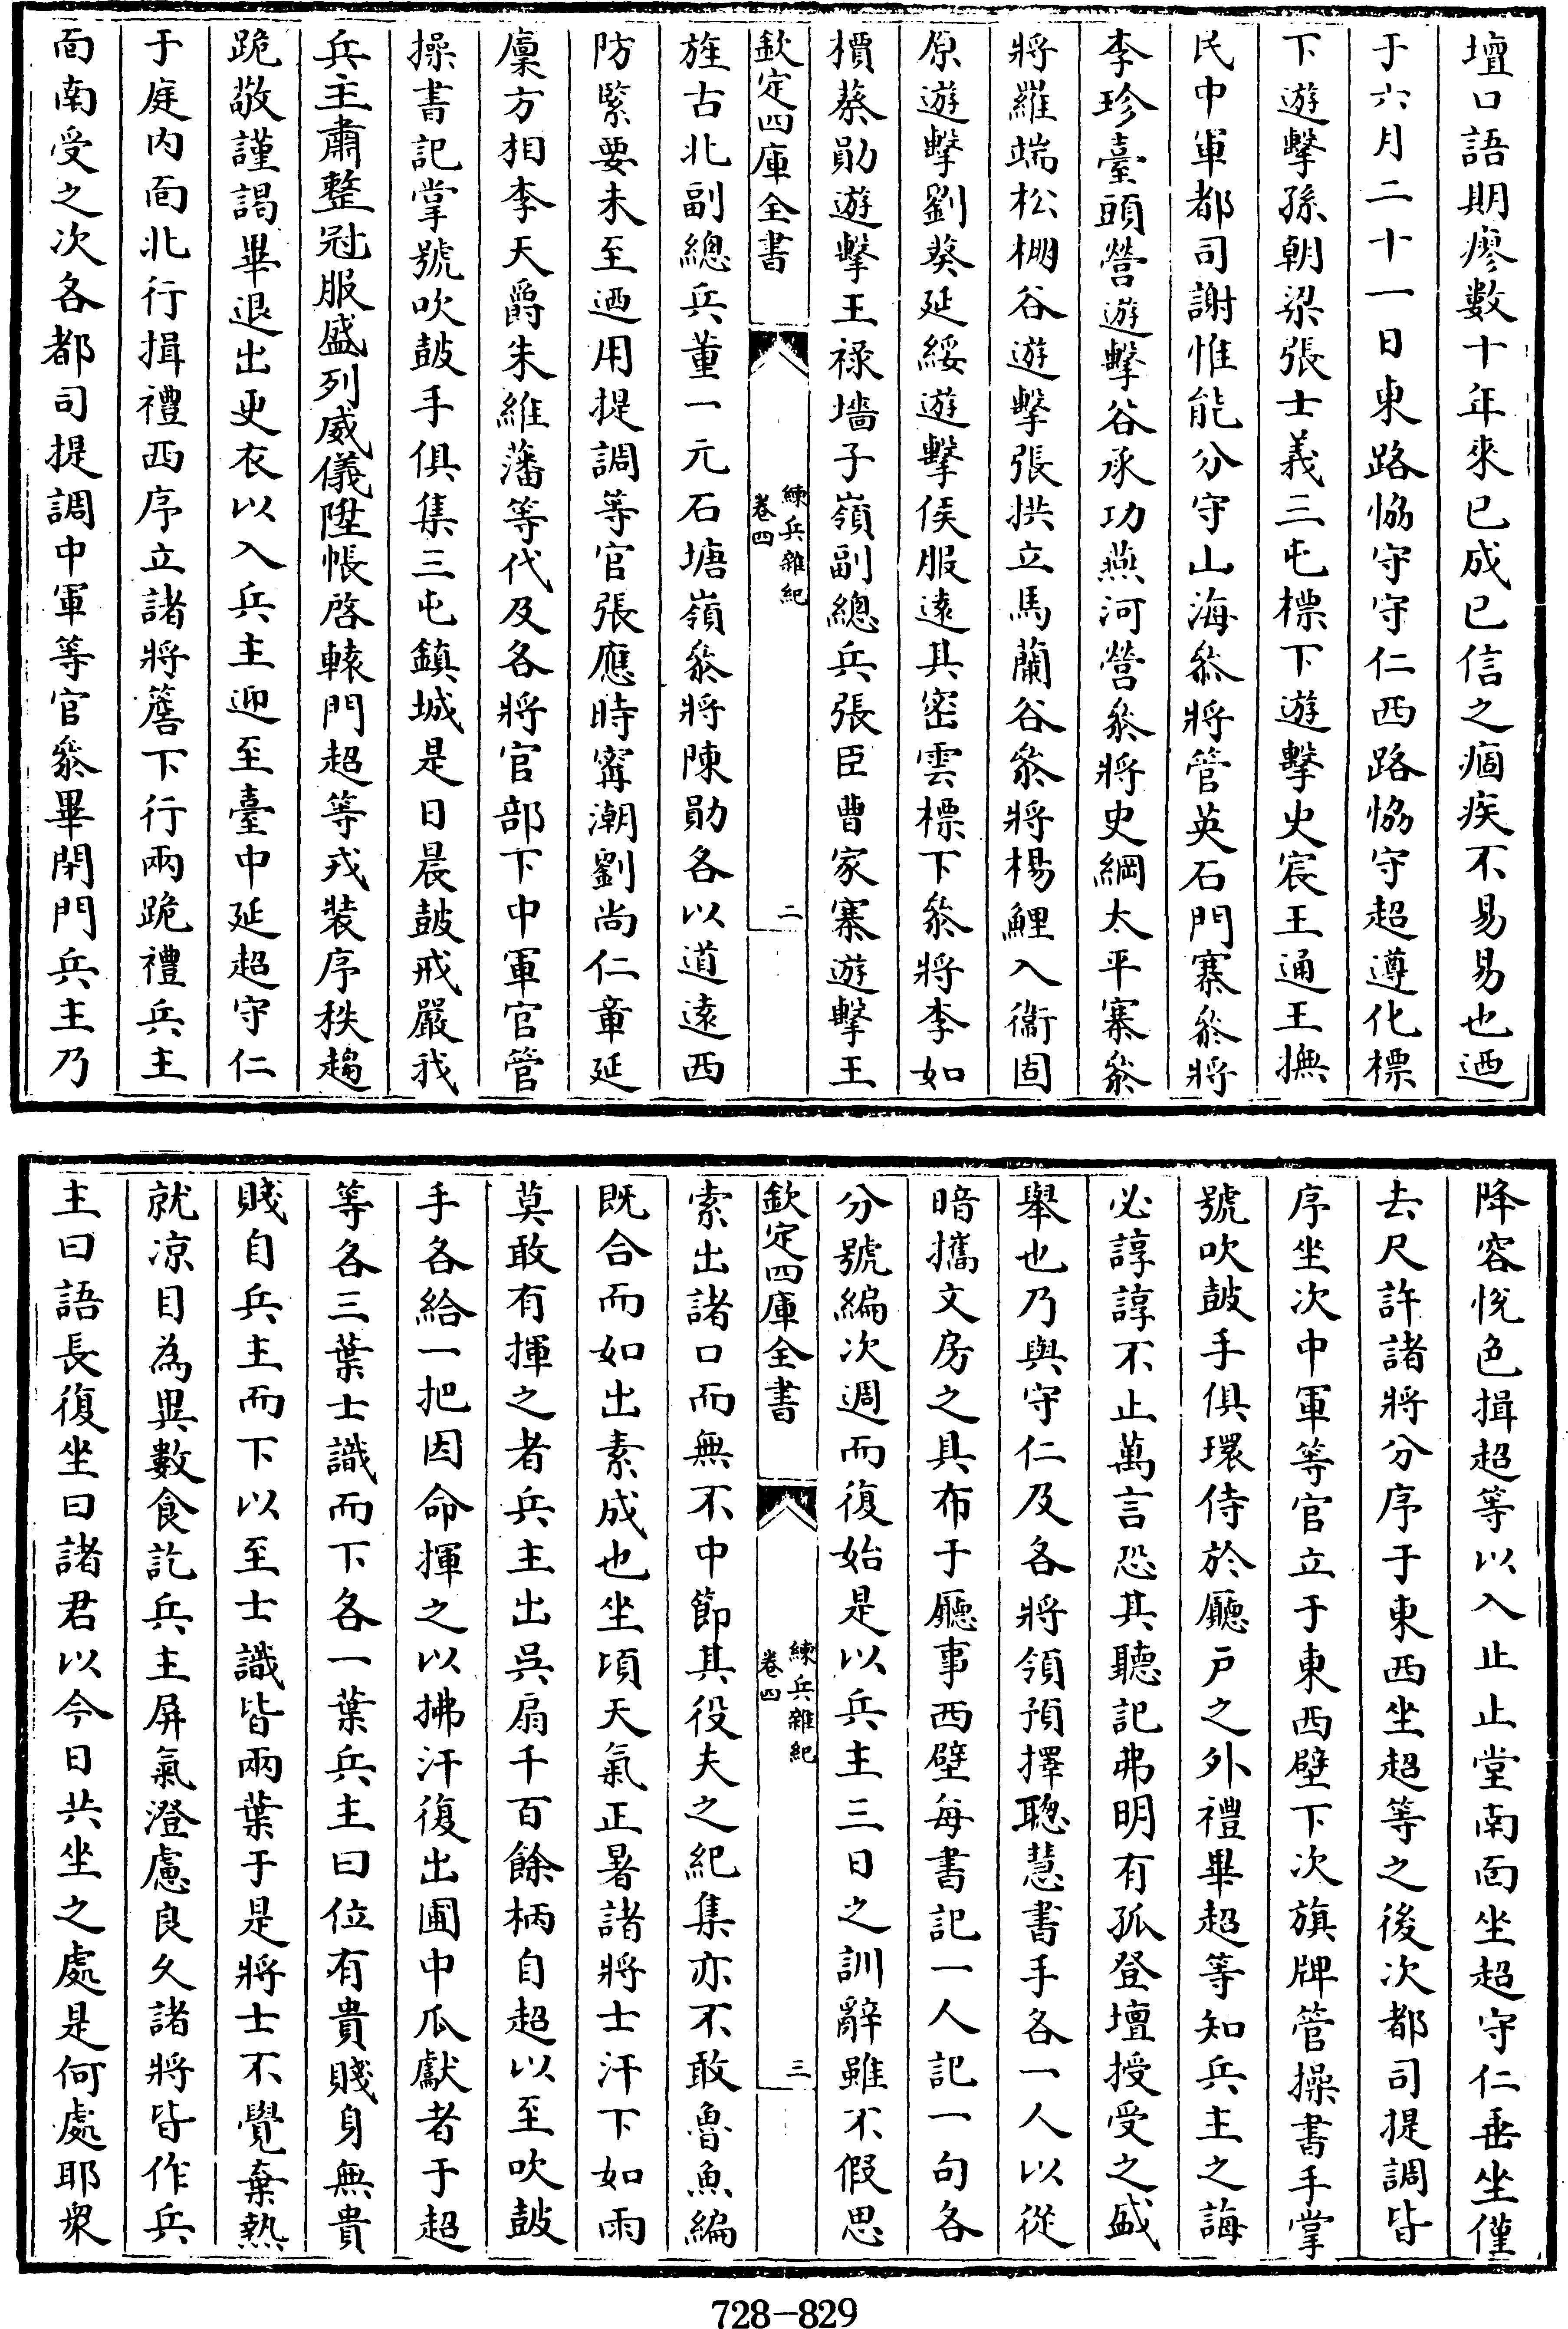 壇口語期瘳數十年來已成已信之痼疾不易易也迺
于六月二十一日東路恊守守仁西路恊守超遵化標
下遊擊孫朝梁張士義三屯標下遊擊史宸王通王撫
民中軍都司謝惟能分守山海叅將管英石門寨叅將
李珍臺頭營遊擊谷承功燕河營叅將史綱太平寨叅
將羅端松棚谷遊擊張拱立馬蘭谷叅將楊鯉入衞固
原遊擊劉葵延綏遊擊侯服逺其密雲標下叅將李如
檟蔡勛遊擊王祿墻子嶺副總兵張臣曹家寨遊擊王
欽定四庫全書
練兵雜紀
卷四
二
旌古北副總兵董一元石塘嶺叅將陳勛各以道逺西
防緊要未至迺用提調等官張應時寗潮劉尚仁章延
廩方相李天爵朱維藩等代及各將官部下中軍官管
操書記掌號吹鼓手俱集三屯鎮城是日晨鼓戒嚴我
兵主肅整冠服盛列威儀陞帳啓轅門超等戎裝序秩趨
跪敬謹謁畢退出更衣以入兵主迎至臺中延超守仁
于庭内面北行揖禮西序立諸將簷下行兩跪禮兵主
面南受之次各都司提調中軍等官叅畢閉門兵主乃
降容恱色揖超等以入止止堂南面坐超守仁垂坐僅
去尺許諸將分序于東西坐超等之後次都司提調皆
序坐次中軍等官立于東西壁下次旗牌管操書手掌
號吹鼓手俱環侍於廳戸之外禮畢超等知兵主之誨
必諄諄不止萬言恐其聽記弗明有孤登壇授受之盛
舉也乃與守仁及各將領預擇聰慧書手各一人以從
暗攜文房之具布于廳事西壁每書記一人記一句各
分號編次週而復始是以兵主三日之訓辭雖不假思
欽定四庫全書
練兵雜紀
卷四
三
索出諸口而無不中節其役夫之紀集亦不敢魯魚編
既合而如出素成也坐頃天氣正暑諸將士汗下如雨
莫敢有揮之者兵主出吳扇千百餘柄自超以至吹鼓
手各給一把因命揮之以拂汗復出圃中瓜獻者于超
等各三葉士識而下各一葉兵主曰位有貴賤身無貴
賤自兵主而下以至士識皆兩葉于是將士不覺棄熱
就凉目為異數食訖兵主屏氣澄慮良久諸將皆作兵
主曰語長復坐曰諸君以今日共坐之處是何處耶衆
728-829